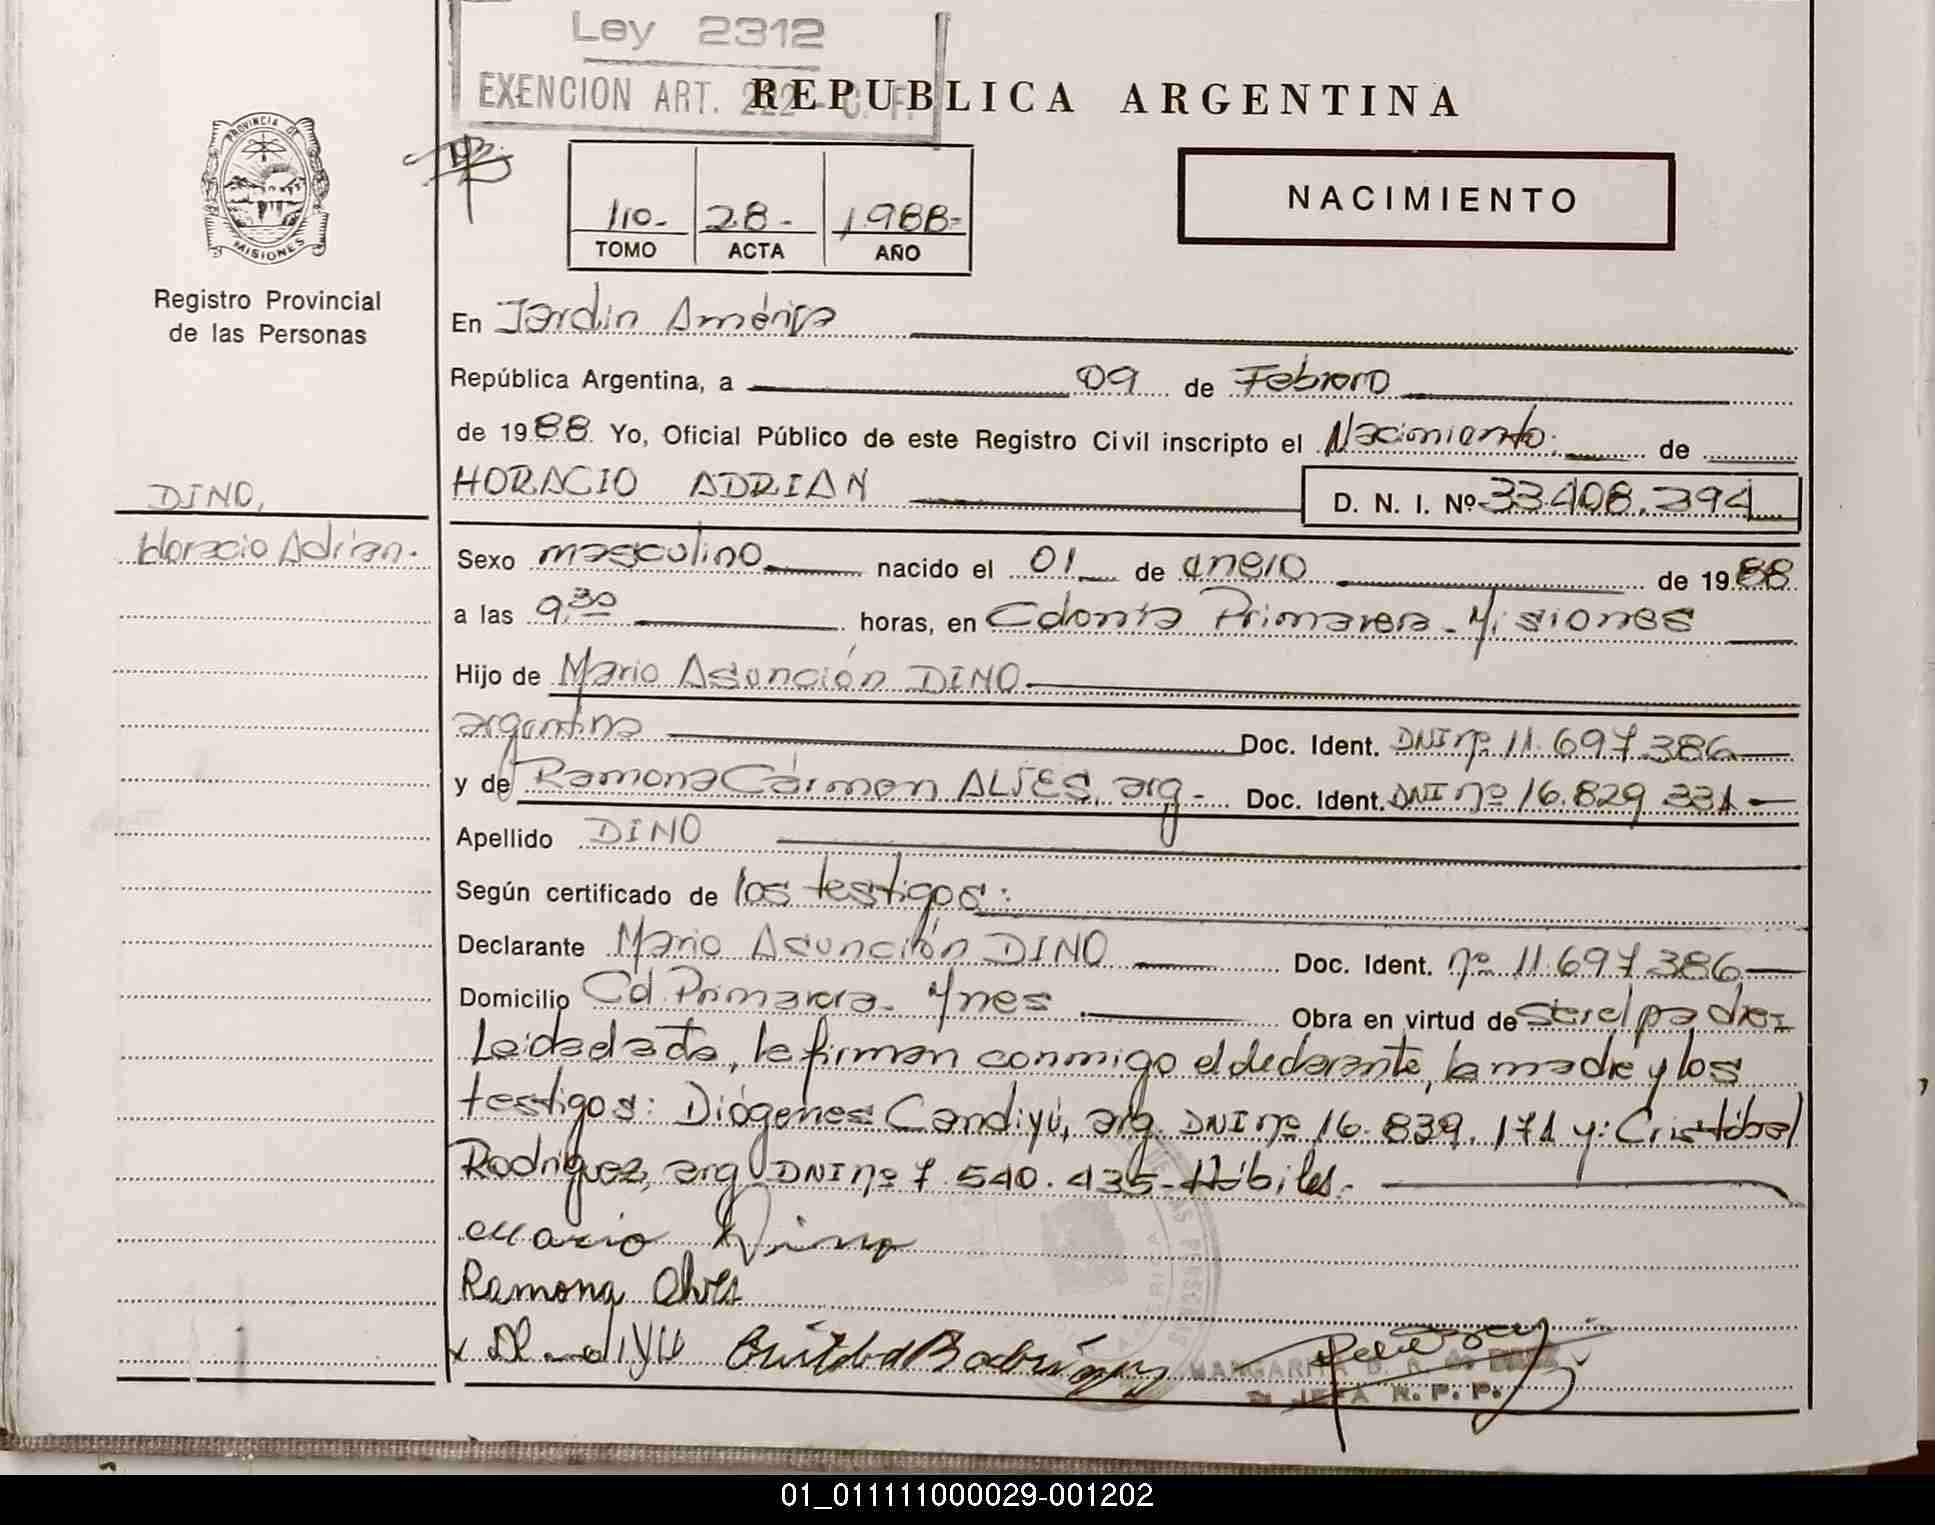 Ley 2312
EXENCION ART. 222 - C. F.
REPUBLICA ARGENTINA
PROVINCIA DE
MISIONES
Registro Provincial
de las Personas
110- 28- 1.988-
TOMO ACTA AÑO
NACIMIENTO
DINO,
Horacio Adrian.
En Jardin América
República Argentina, a 09 de Febrero
de 1988. Yo, Oficial Público de este Registro Civil inscripto el Nacimiento. de
HORACIO ADRIAN D. N. I. Nº 33.408.394
Sexo masculino nacido el 01 de enero de 1988
a las 9,30 horas, en Colonia Primavera - Misiones
Hijo de Mario Asunción DINO
argentino Doc. Ident. DNI nº 11.697.386
y de Ramona Cármen ALVES, arg- Doc. Ident. DNI nº 16.829.331
Apellido DINO
Según certificado de los testigos:
Declarante Mario Asunción DINO Doc. Ident. nº 11.697.386
Domicilio Col. Primavera - Mnes Obra en virtud de ser el padre-
Leida el acta, la firman conmigo el declarante, la madre y los
testigos: Diógenes Candiyú, arg. DNI nº 16.839.171 y: Cristóbal
Rodriguez, arg DNI nº 7.540.435- Hábiles.-
Mario Dino
Ramona Alves
Cristobal Rodriguez
MARGARITA
JEFA R. P. P.
01_011111000029-001202